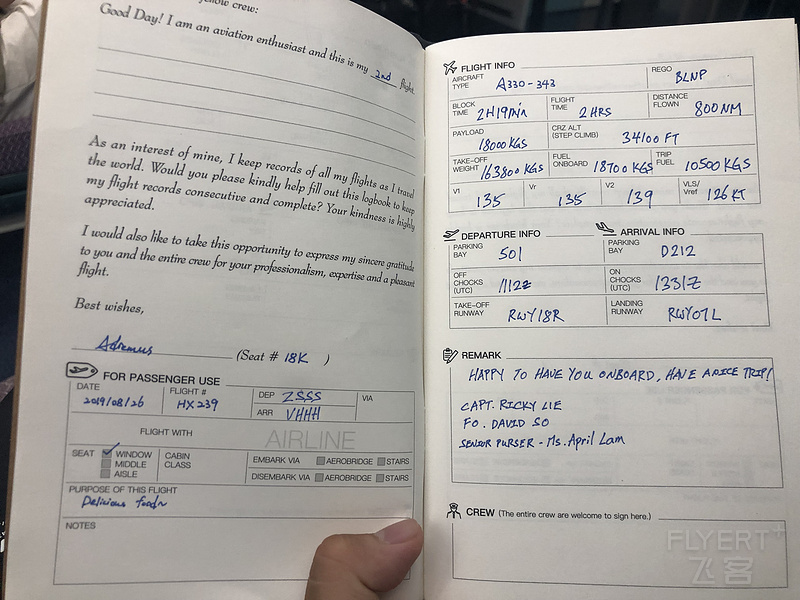 fellow crew:
Good Day! I am an aviation enthusiast and this is my 2nd flight.
As an interest of mine, I keep records of all my flights as I travel
the world. Would you please kindly help fill out this logbook to keep
my flight records consecutive and complete? Your kindness is highly
appreciated.
I would also like to take this opportunity to express my sincere gratitude
to you and the entire crew for your professionalism, expertise and a pleasant
flight.
Best wishes,
(Seat # 18K )
FOR PASSENGER USE
DATE 2019/08/26 FLIGHT # HX239 DEP ZSSS VIA
ARR VHHH
FLIGHT WITH AIRLINE
SEAT WINDOW CABIN CLASS EMBARK VIA AEROBRIDGE STAIRS
MIDDLE
AISLE DISEMBARK VIA AEROBRIDGE STAIRS
PURPOSE OF THIS FLIGHT
Delicious
NOTES
FLIGHT INFO
AIRCRAFT TYPE A330-343 REGO BLNP
BLOCK TIME 2H19min FLIGHT TIME 2HRS DISTANCE FLOWN 800NM
PAYLOAD 18000KGS CRZ ALT (STEP CLIMB) 34100 FT
TAKE-OFF WEIGHT 163800KGS FUEL ONBOARD 18700KGS TRIP FUEL 10500KGS
V1 135 Vr 135 V2 139 VLS/Vref 126KT
DEPARTURE INFO
PARKING BAY 501
OFF CHOCKS (UTC) 1112Z
TAKE-OFF RUNWAY RWY18R
ARRIVAL INFO
PARKING BAY D212
ON CHOCKS (UTC) 1331Z
LANDING RUNWAY RWY07L
REMARK
HAPPY TO HAVE YOU ONBOARD, HAVE A NICE TRIP!
CAPT. RICKY LIE
FO. DAVID SO
SENIOR PURSER - Ms. April Lam
CREW (The entire crew are welcome to sign here.)
FLYERT+
飞客